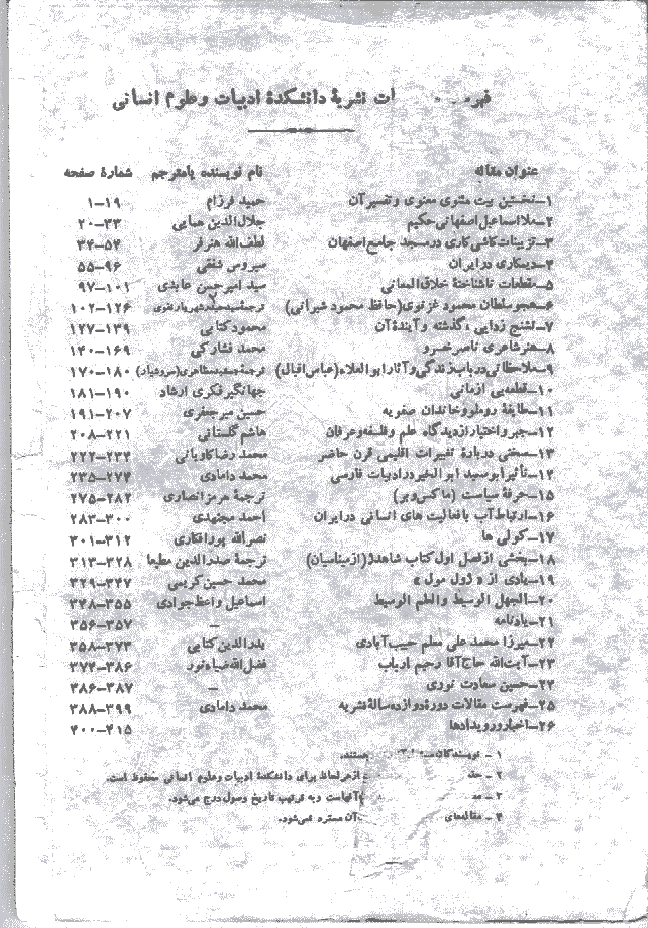 ات نشریهٔ دانشکدهٔ ادبیات و علوم انسانی
عنوان مقاله نام نویسنده یا مترجم شمارهٔ صفحه
۱–نخستین بیت مثنوی معنوی و تفسیر آن حمید فرزام ۱–۱۹
۲–ملااسماعیل اصفهانی حکیم جلال‌الدین همایی ۲۰–۳۳
۳–تزیینات کاشی‌کاری در مسجد جامع اصفهان لطف‌الله هنرفر ۳۴–۵۴
۴–دیمکاری در ایران سیروس شفقی ۵۵–۹۶
۵–قطعات ناشناختهٔ خلاق‌المعانی سید امیرحسن عابدی ۹۷–۱۰۱
۶–هجو سلطان محمود غزنوی(حافظ محمود شیرانی) ۱۰۲–۱۲۶
۷–تشنج زدایی ،گذشته و آیندهٔ آن محمود کتابی ۱۲۷–۱۳۹
۸–هنر شاعری ناصر خسرو محمد فشارکی ۱۴۰–۱۶۹
۹–ملاحظاتی در باب زندگی و آثار ابوالعلاء(عباس اقبال) ۱۷۰–۱۸۰
۱۰–قطعه‌یی ازمانی جهانگیر فکری ارشاد ۱۸۱–۱۹۰
۱۱–طایفهٔ روملو و خاندان صفویه حسین میرجعفری ۱۹۱–۲۰۷
۱۲–جبر و اختیار از دیدگاه علم و فلسفه و عرفان هاشم گلستانی ۲۰۸–۲۲۱
۱۳–سخنی دربارهٔ تغییرات اقلیمی قرن حاضر محمد رضا کاویانی ۲۲۲–۲۳۴
۱۴–تأثیر ابوسعید ابوالخیر در ادبیات فارسی محمد دامادی ۲۳۵–۲۷۴
۱۵–حرفهٔ سیاست (ماکس وبر) ترجمهٔ هرمز انصاری ۲۷۵–۲۸۲
۱۶–ارتباط آب با فعالیت های انسانی در ایران احمد مجتهدی ۲۸۳–۳۰۰
۱۷–کولی ها نصرالله پورافکاری ۳۰۱–۳۱۲
۱۸–بخشی از فصل اول کتاب شاهدژ(از میناسیان) ترجمهٔ صدرالدین مطیعا ۳۱۳–۳۲۸
۱۹–یادی از « ژول مول » محمد حسین کریمی ۳۲۹–۳۴۷
۲۰–الجهل الوسیط والعلم الوسیط اسماعیل واعظ جوادی ۳۴۸–۳۵۵
۲۱–یادنامه – ۳۵۶–۳۵۷
۲۲–میرزا محمد علی معلم حبیب آبادی بدرالدین کتابی ۳۵۸–۳۷۳
۲۳–آیت‌الله حاج آقا رحیم ارباب فضل‌الله ضیاء نور ۳۷۴–۳۸۶
۲۴–حسین سعادت نوری – ۳۸۶–۳۸۷
۲۵–فهرست مقالات دورهٔ دوازده سالهٔ نشریه محمد دامادی ۳۸۸–۳۹۹
۲۶–اخبار و رویدادها ۴۰۰–۴۱۵
۱ – نویسندگان هستند.
۲ – از هر لحاظ برای دانشکدهٔ ادبیات و علوم انسانی محفوظ است.
۳ – آنهاست و به ترتیب تاریخ وصول درج می‌شود.
۴ – مقاله‌های آن مسترد نمی‌شود.